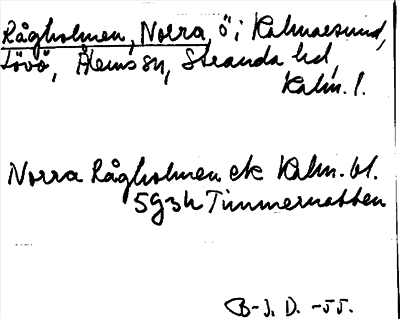 Rågholmen, Norra, ö i Kalmarsund,
Lövö, Ålems sn, Stranda hd,
Kalm. l.
Norra Rågholmen ek Kalm. bl.
5g3h Timmernabben
B-J. D. -55.